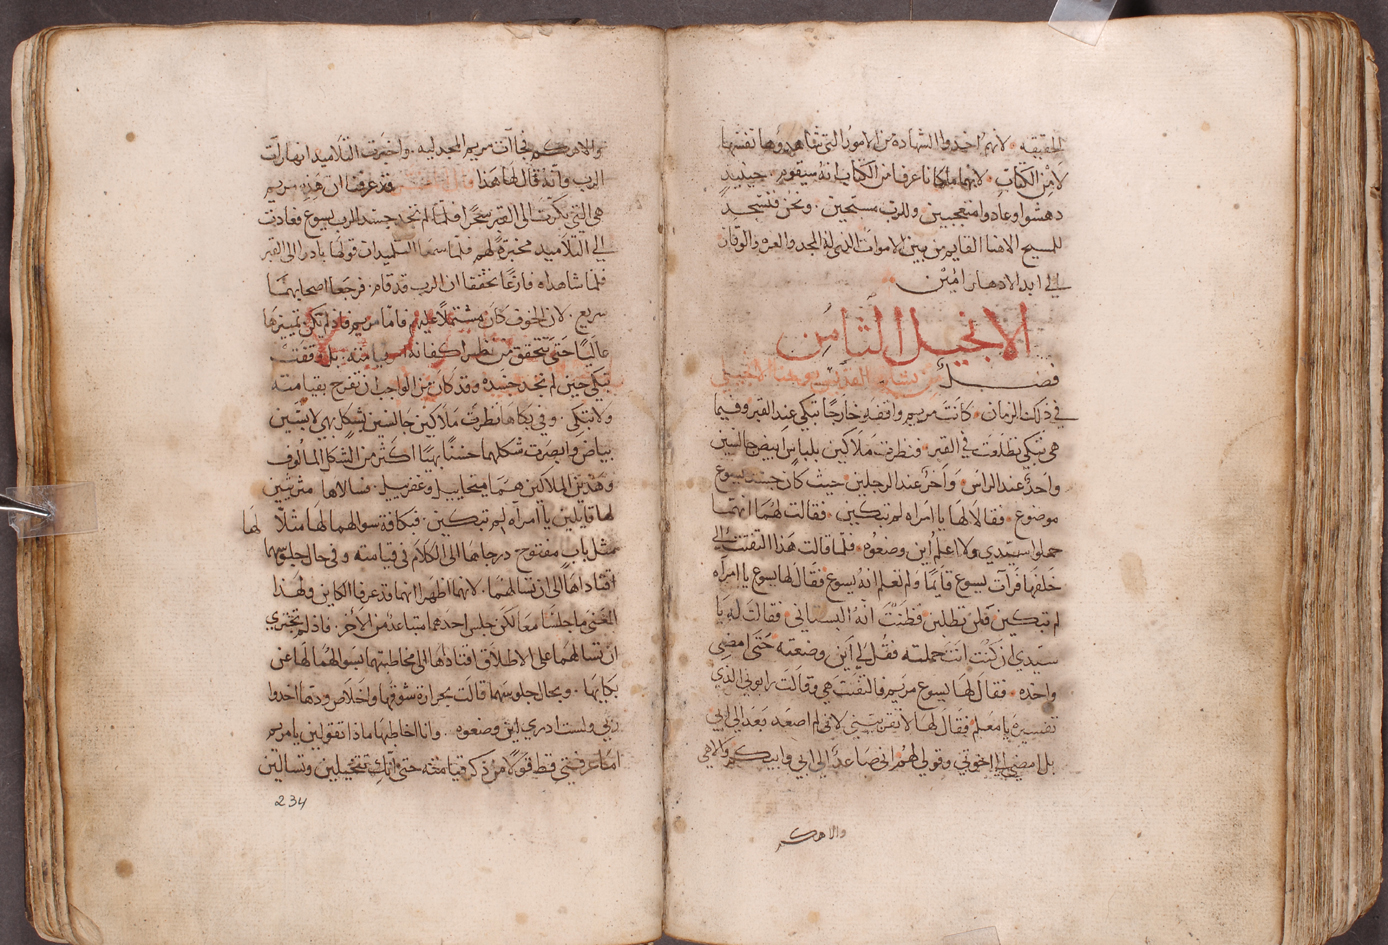 الحقيقه. لانهم اخذوا الشهاده من الامور التى شاهدوها نفسها
لا من الكتاب. لانهما ماكانا عرفا من الكتاب انه سيقوم. حينيدٍ
دهشوا وعادوا متعجبين وللرب مسبحين. ونحن فنسجد
للمسيح الاهنا القايم من بين الاموات الذى له المجد والعزه والوقار
الي ابد الادهار امين.
الانجيل الثامن
فصل من بشارة القديس يوحنا الانجيلي
في ذلك الزمان. كانت مريم واقفه خارجًا تبكى عند القبر وفيما
هى تبكى تطلعت في القبر. فنظرت ملاكين بلباس ابيض جالسين
واحدٌ عند الراس وآخرُ عند الرجلين. حيث كان جسد يسوع
موضوع. فقالا لها يا امراه لم تبكين. فقالت لهما انهما
حملوا سيدي ولا اعلم اين وضعوه. فلما قالت هذا التفتت الى
خلفها فرآت يسوع قايمًا ولم تعلم انه يسوع فقال لها يسوع يا امراه
لم تبكين فمن تطلبين فظنت انه البستانى. فقالت له يا
سيدي ان كنت انت حملته فقل لي اين وضعته حتى امضى
واخذه. فقال لها يسوع مريم فالتفتت هى وقالت رابونى الذي
تفسيره يا معلم فقال لها لا تقربينى لانى لم اصعد بعد الى ابى
بل امضى الى اخوتي وقولى لهم انى صاعدٌ الى ابى وابيكم والاهى
والاهكم
والاهكم فجاآت مريم المجدليه. واخبرت التلاميذ انها رات
الرب وانه قال لها هذا قد عرفنا ان هذه مريم
هى التى بكرت الى القبر سحرًا فلما لم تجد جسد الرب يسوع فعادت
الى التلاميذ مخبرةً لهم فلما سمعا التلميذان قولها بادرا الى القبر
فلما شاهداه فارغًا تحققا ان الرب قد قام. فرجعا اصحابهما
سريع. لان الخوف كان مشتملاً عليهم فاما مريم فاذ لم تكن تميزها
عاليًا حتى تتحقق من نظر اكفانه امر قيامته. بل وقفت
تبكى حين لم تجد جسده وقد كان من الواجب ان تفرح بقيامته
ولا تبكى. وفى بكاها نظرت ملاكين جالسين بشكل بهى لابسين
بياض وابصرت شكلهما حسنًا بهيًا اكثر من الشكل المالوف
وهذين الملاكين هما ميخاييل وغفرييل. فسالاها مرتين
لها قايلين يا امراه لم تبكين. فكافة سوالهما لها مثلا لها
مثل باب مفتوح درجاها الى الكلام فى قيامته وفى حال جلوسهما
اقتاداها الى ان تسالهما. لانهما اظهرا انهما قد عرفا الكاين ولهذا
المعنى ما جلسا معًا لكن جلس احدهما متباعد من الآخر. فاذ لم تجتري
ان تسالهما على الاطلاق اقتادها الى مخاطبتهما بسوالهما لها عن
بكايها. وبحال جلوسهما قالت بحرارة شوقها واخلاص ودها اخذوا
ربى ولست ادري اين وضعوه. وانا اخاطبها ماذا تقولين يا مريم
اما عرفتى قط قولًا من ذكر قيامته حتى انك تتخيلين وتسالين
234